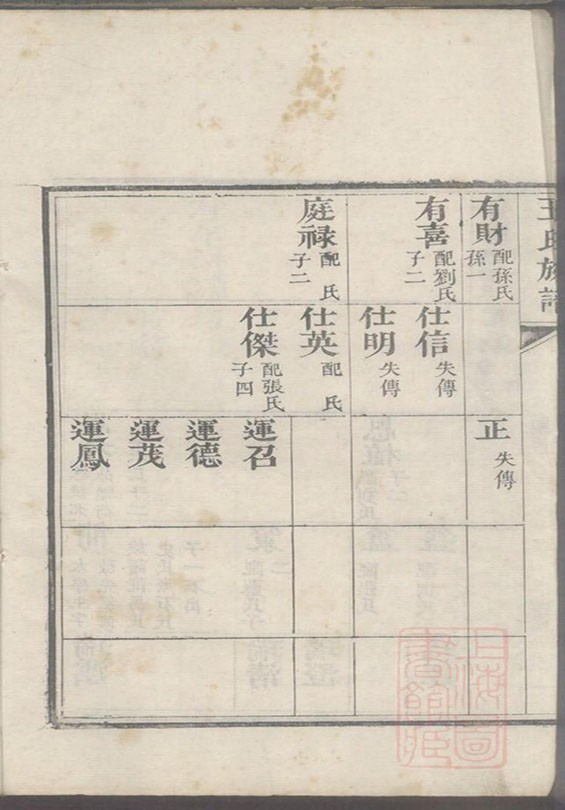 王氏族譜
有財 配孫氏 孫一
有喜 配劉氏 子二
庭禄 配 氏 子二
仕信 失傳
仕明 失傳
仕英 配 氏
仕傑 配張氏 子四
正 失傳
運召
運德
運茂
運鳳
上海圖書館藏